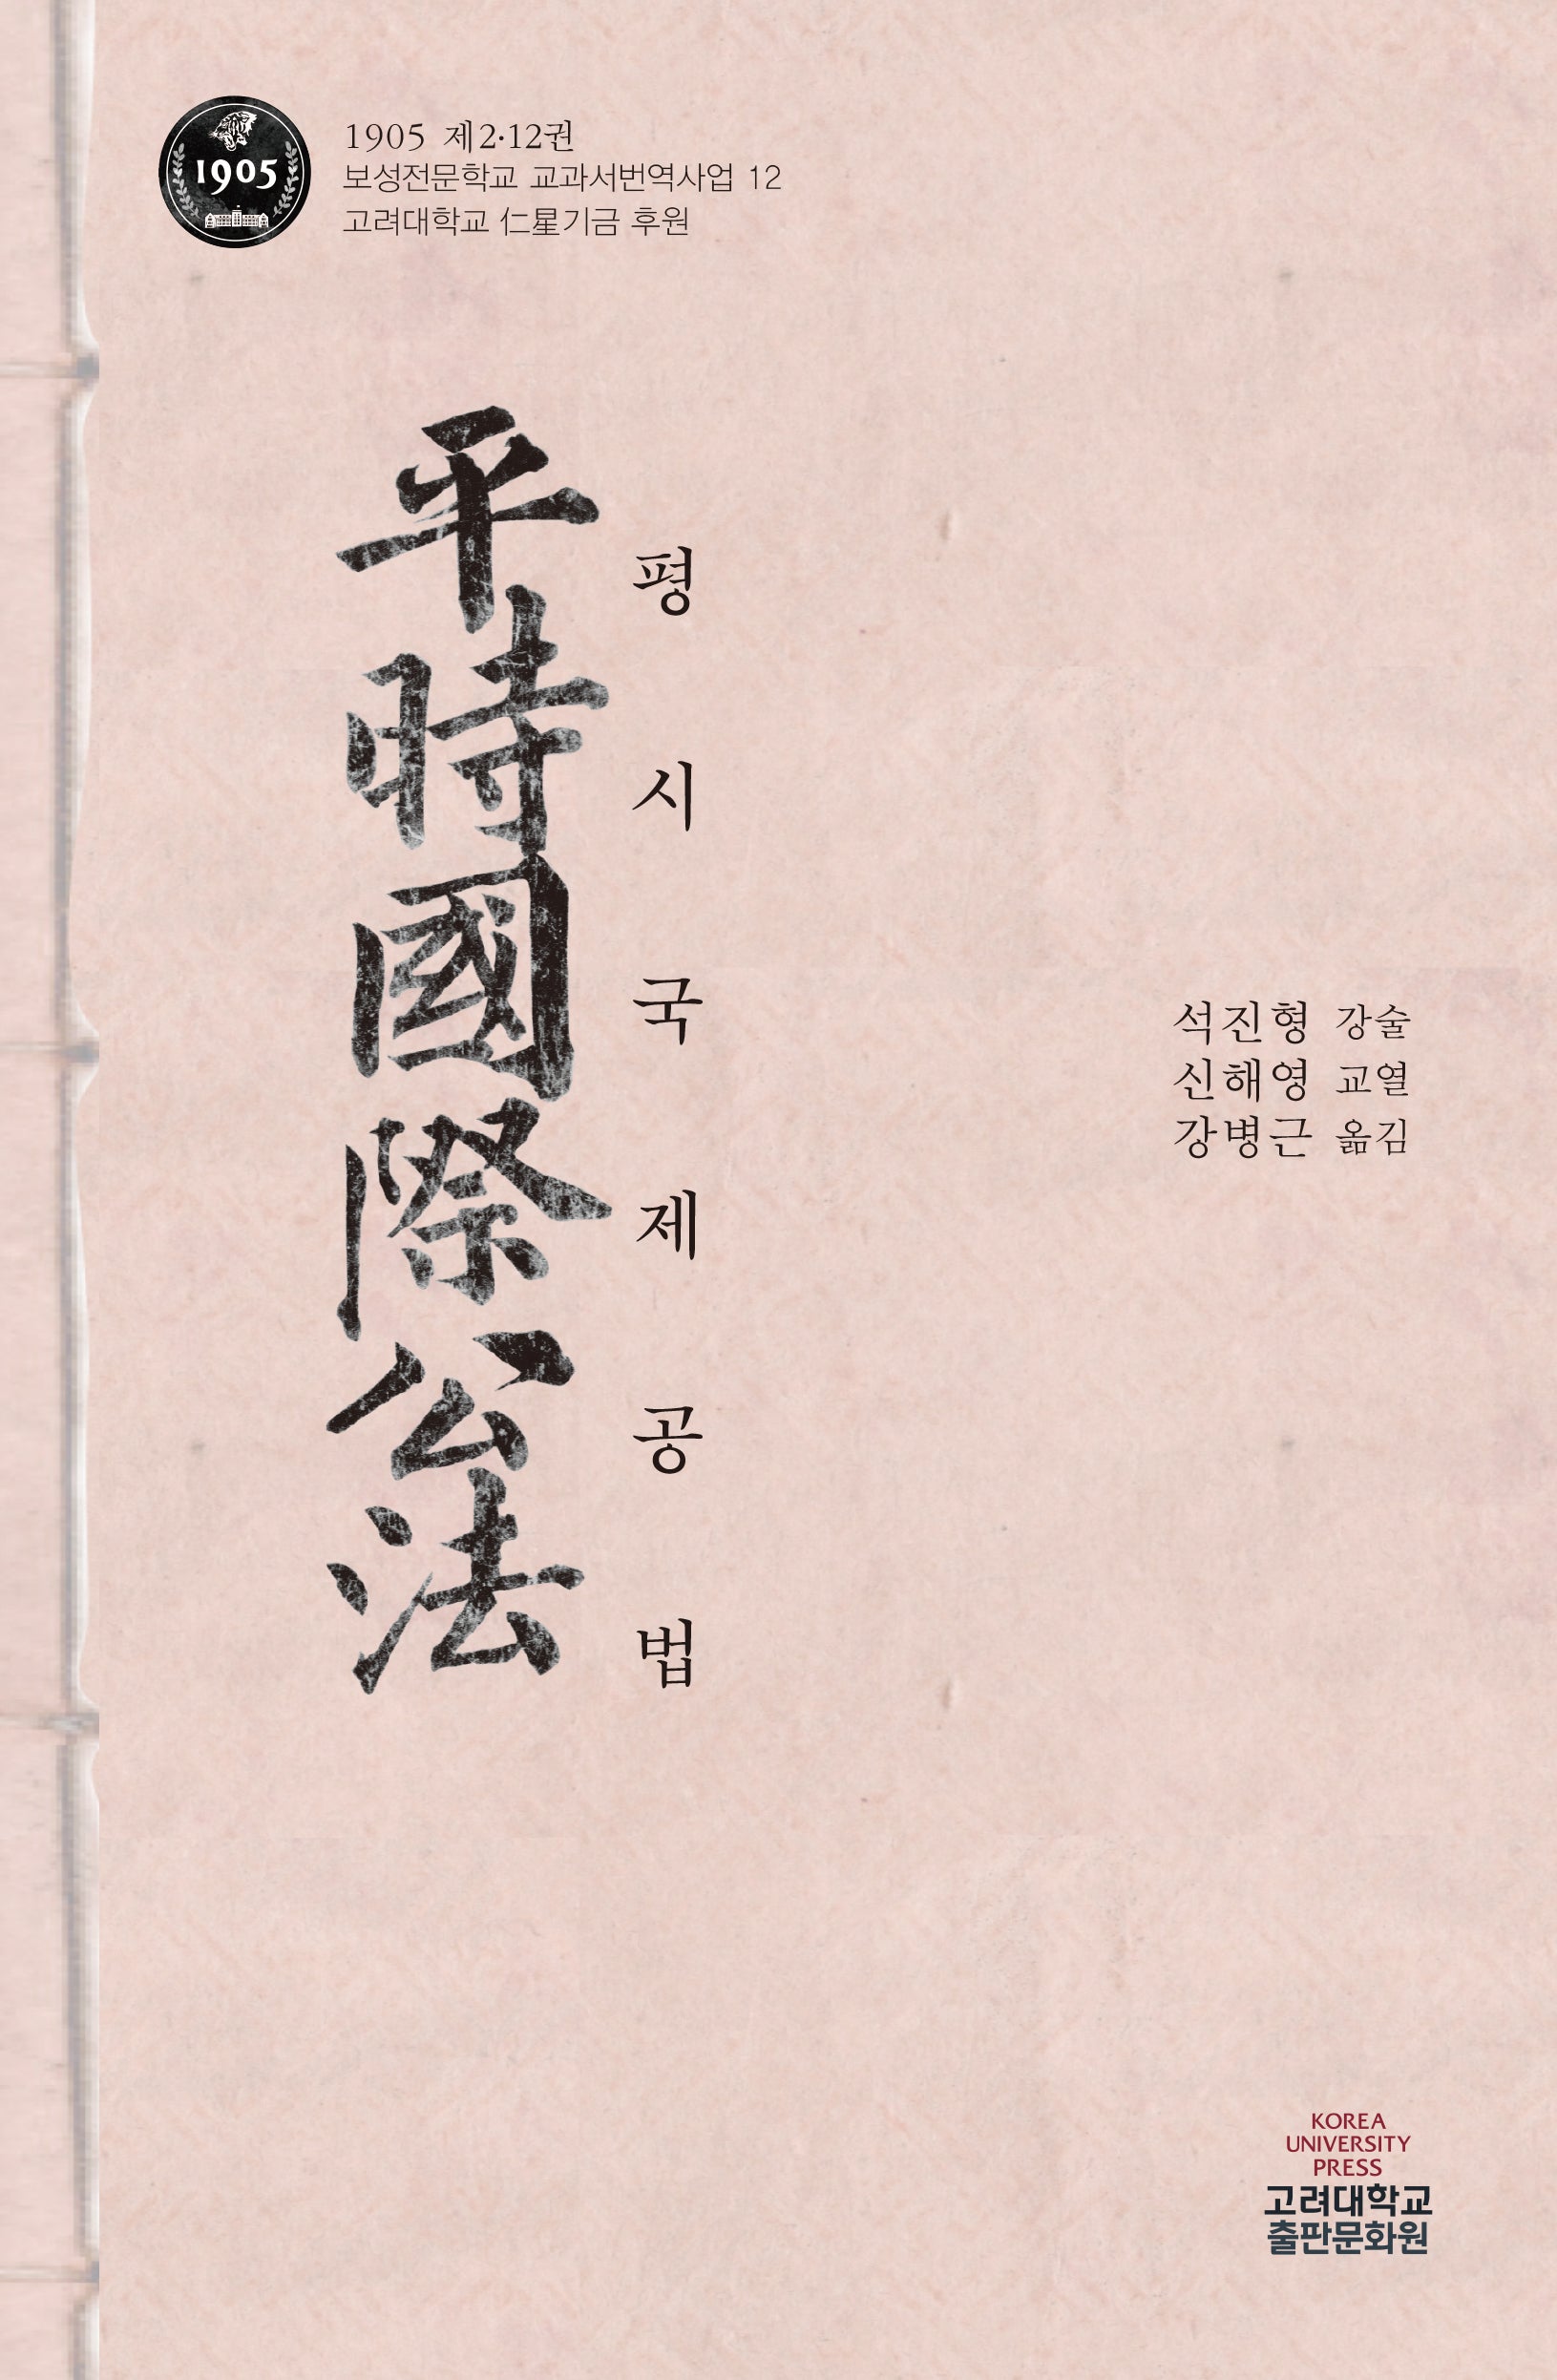 1905
1905 제2·12권
보성전문학교 교과서번역사업 12
고려대학교 仁星기금 후원
平時國際公法
평시국제공법
석진형 강술
신해영 교열
강병근 옮김
KOREA
UNIVERSITY
PRESS
고려대학교
출판문화원